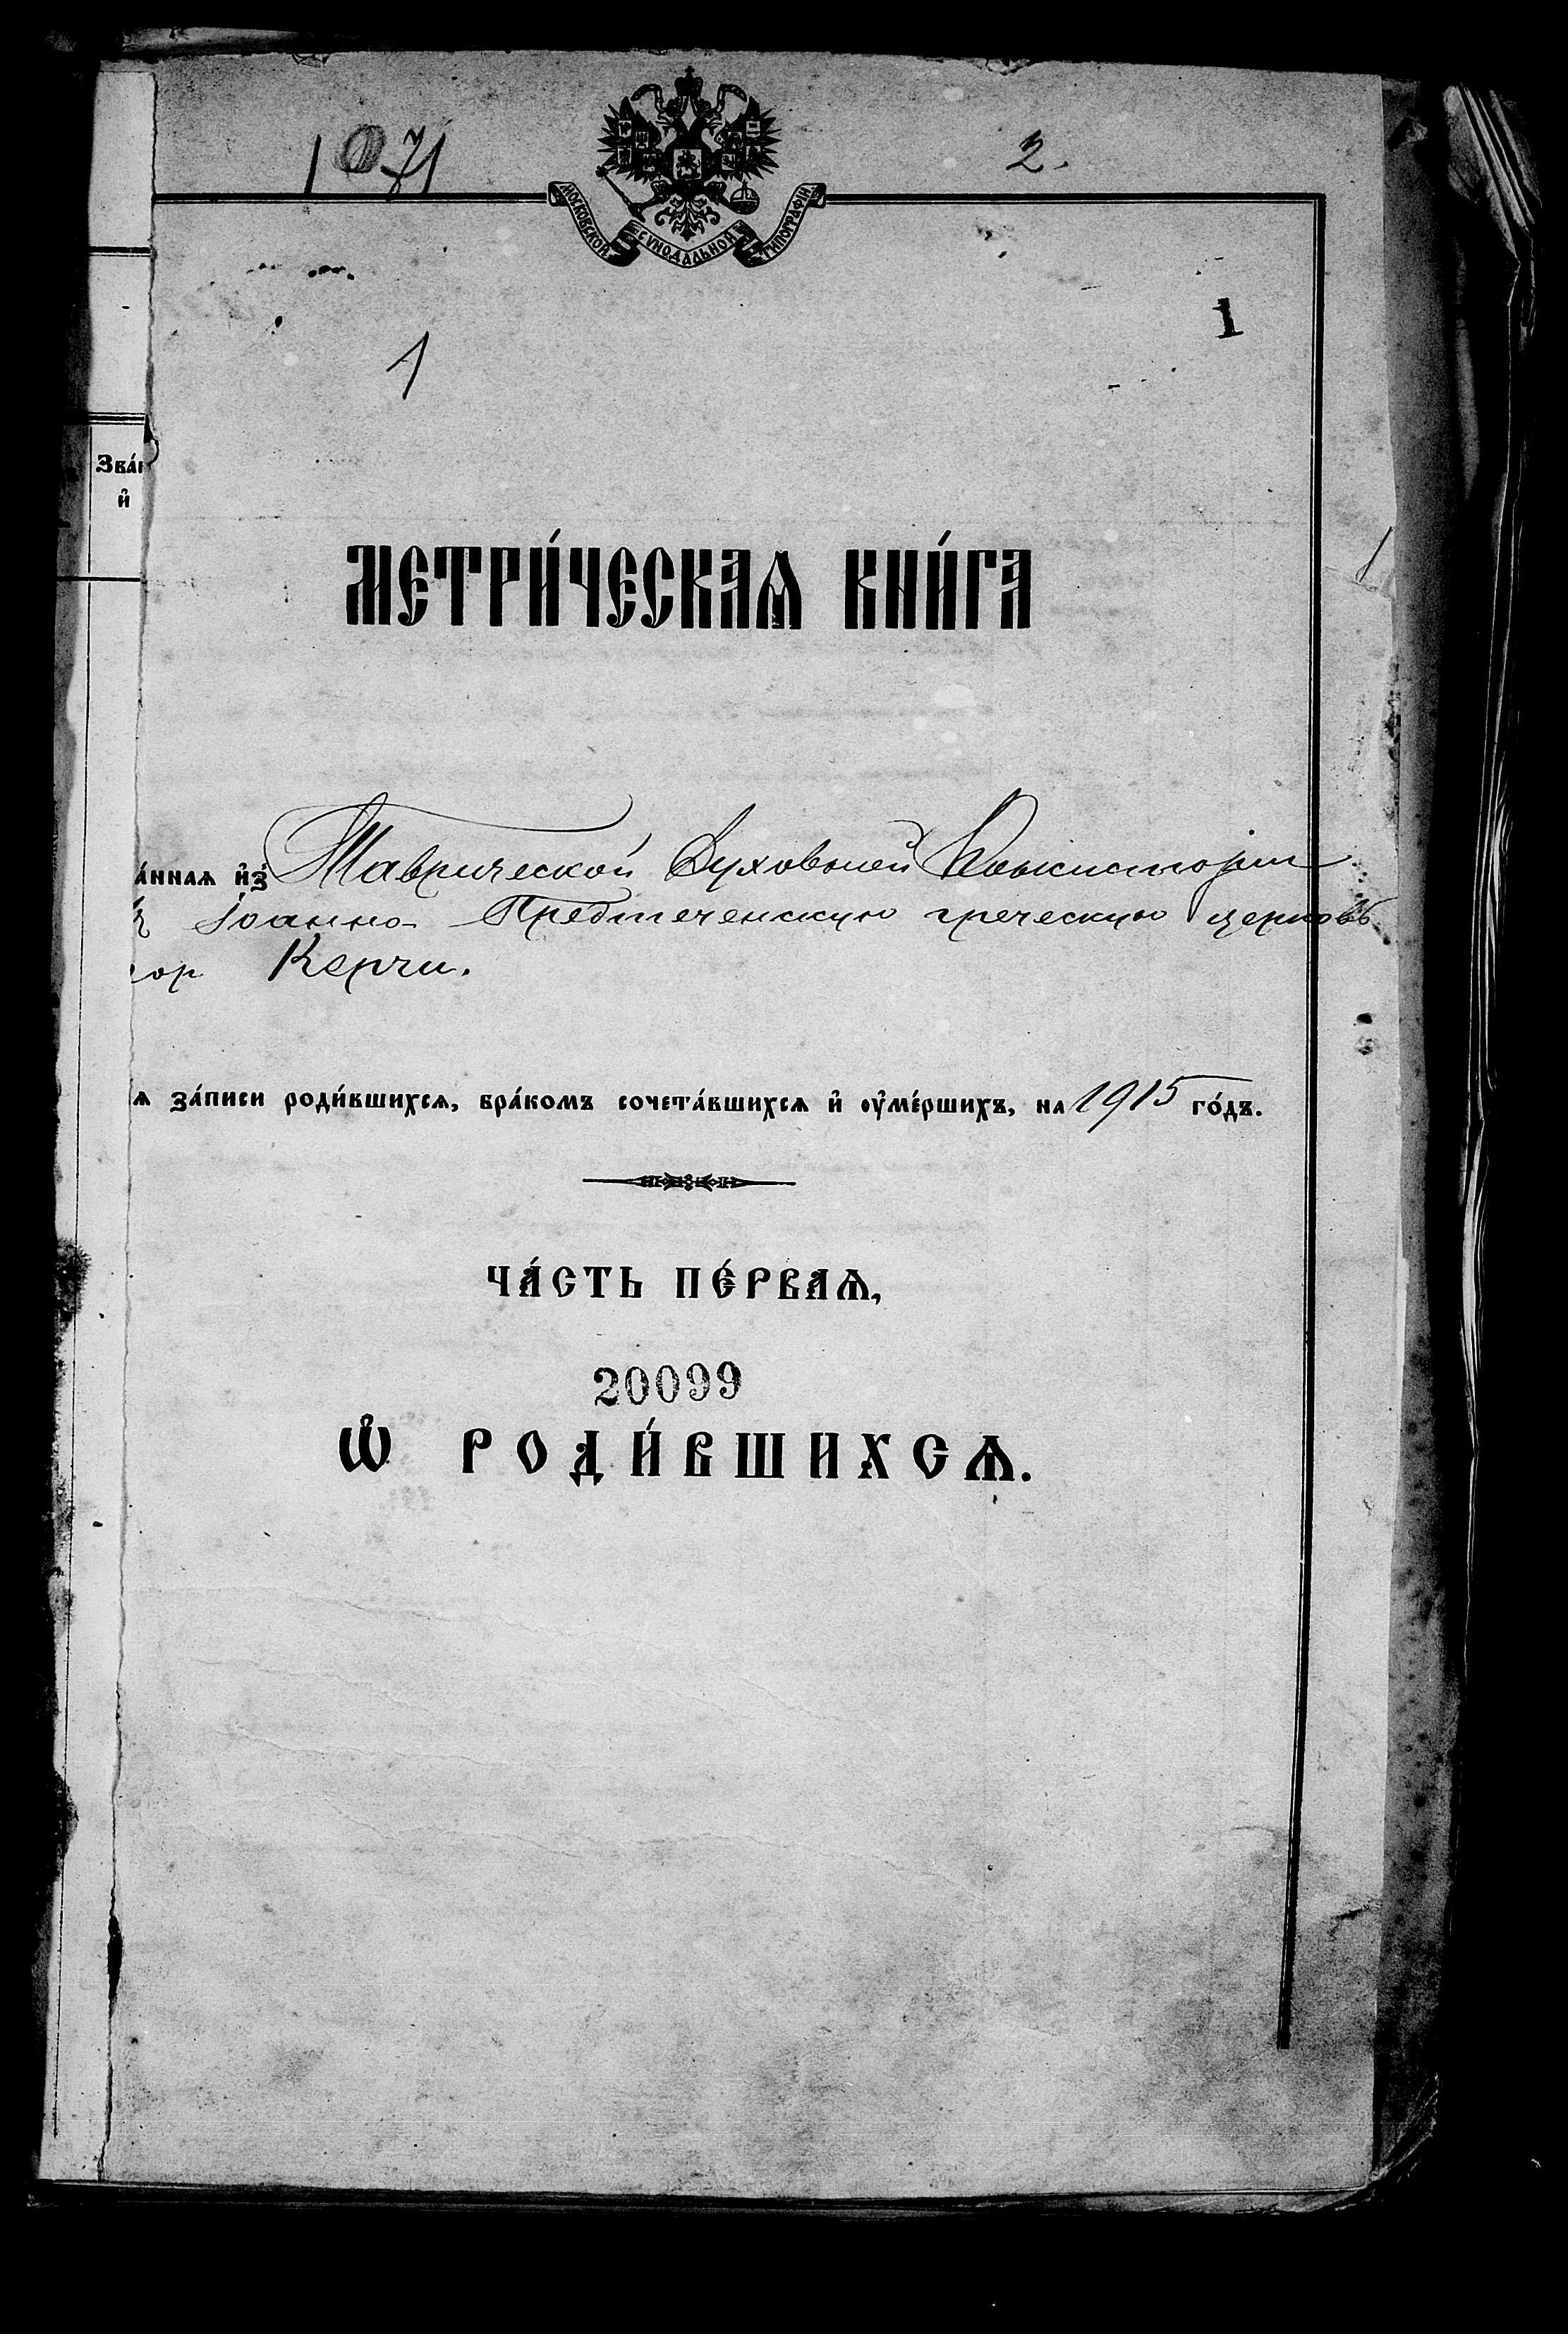 1071
2.
МОСКОВСКОЙ СѴНОДАЛЬНОЙ ТИПОГРАФІИ
1
1
Зва́н
и҆
МЕТРИ́ЧЕСКАѦ КНИ́ГА
а́ннаѧ и҆з̾ Таврической Духовной Консисторіи
Іоанно-Предтеченскую греческую церковь
гор Керчи.
ѧ за́писи роди́вшихсѧ, бра́комъ сочета́вшихсѧ и҆ ᲂу҆ме́ршихъ, на 1915 го́дъ.
ЧА́СТЬ ПЕ́РВАѦ,
20099
Ѡ҆ РОДИ́ВШИХСѦ.